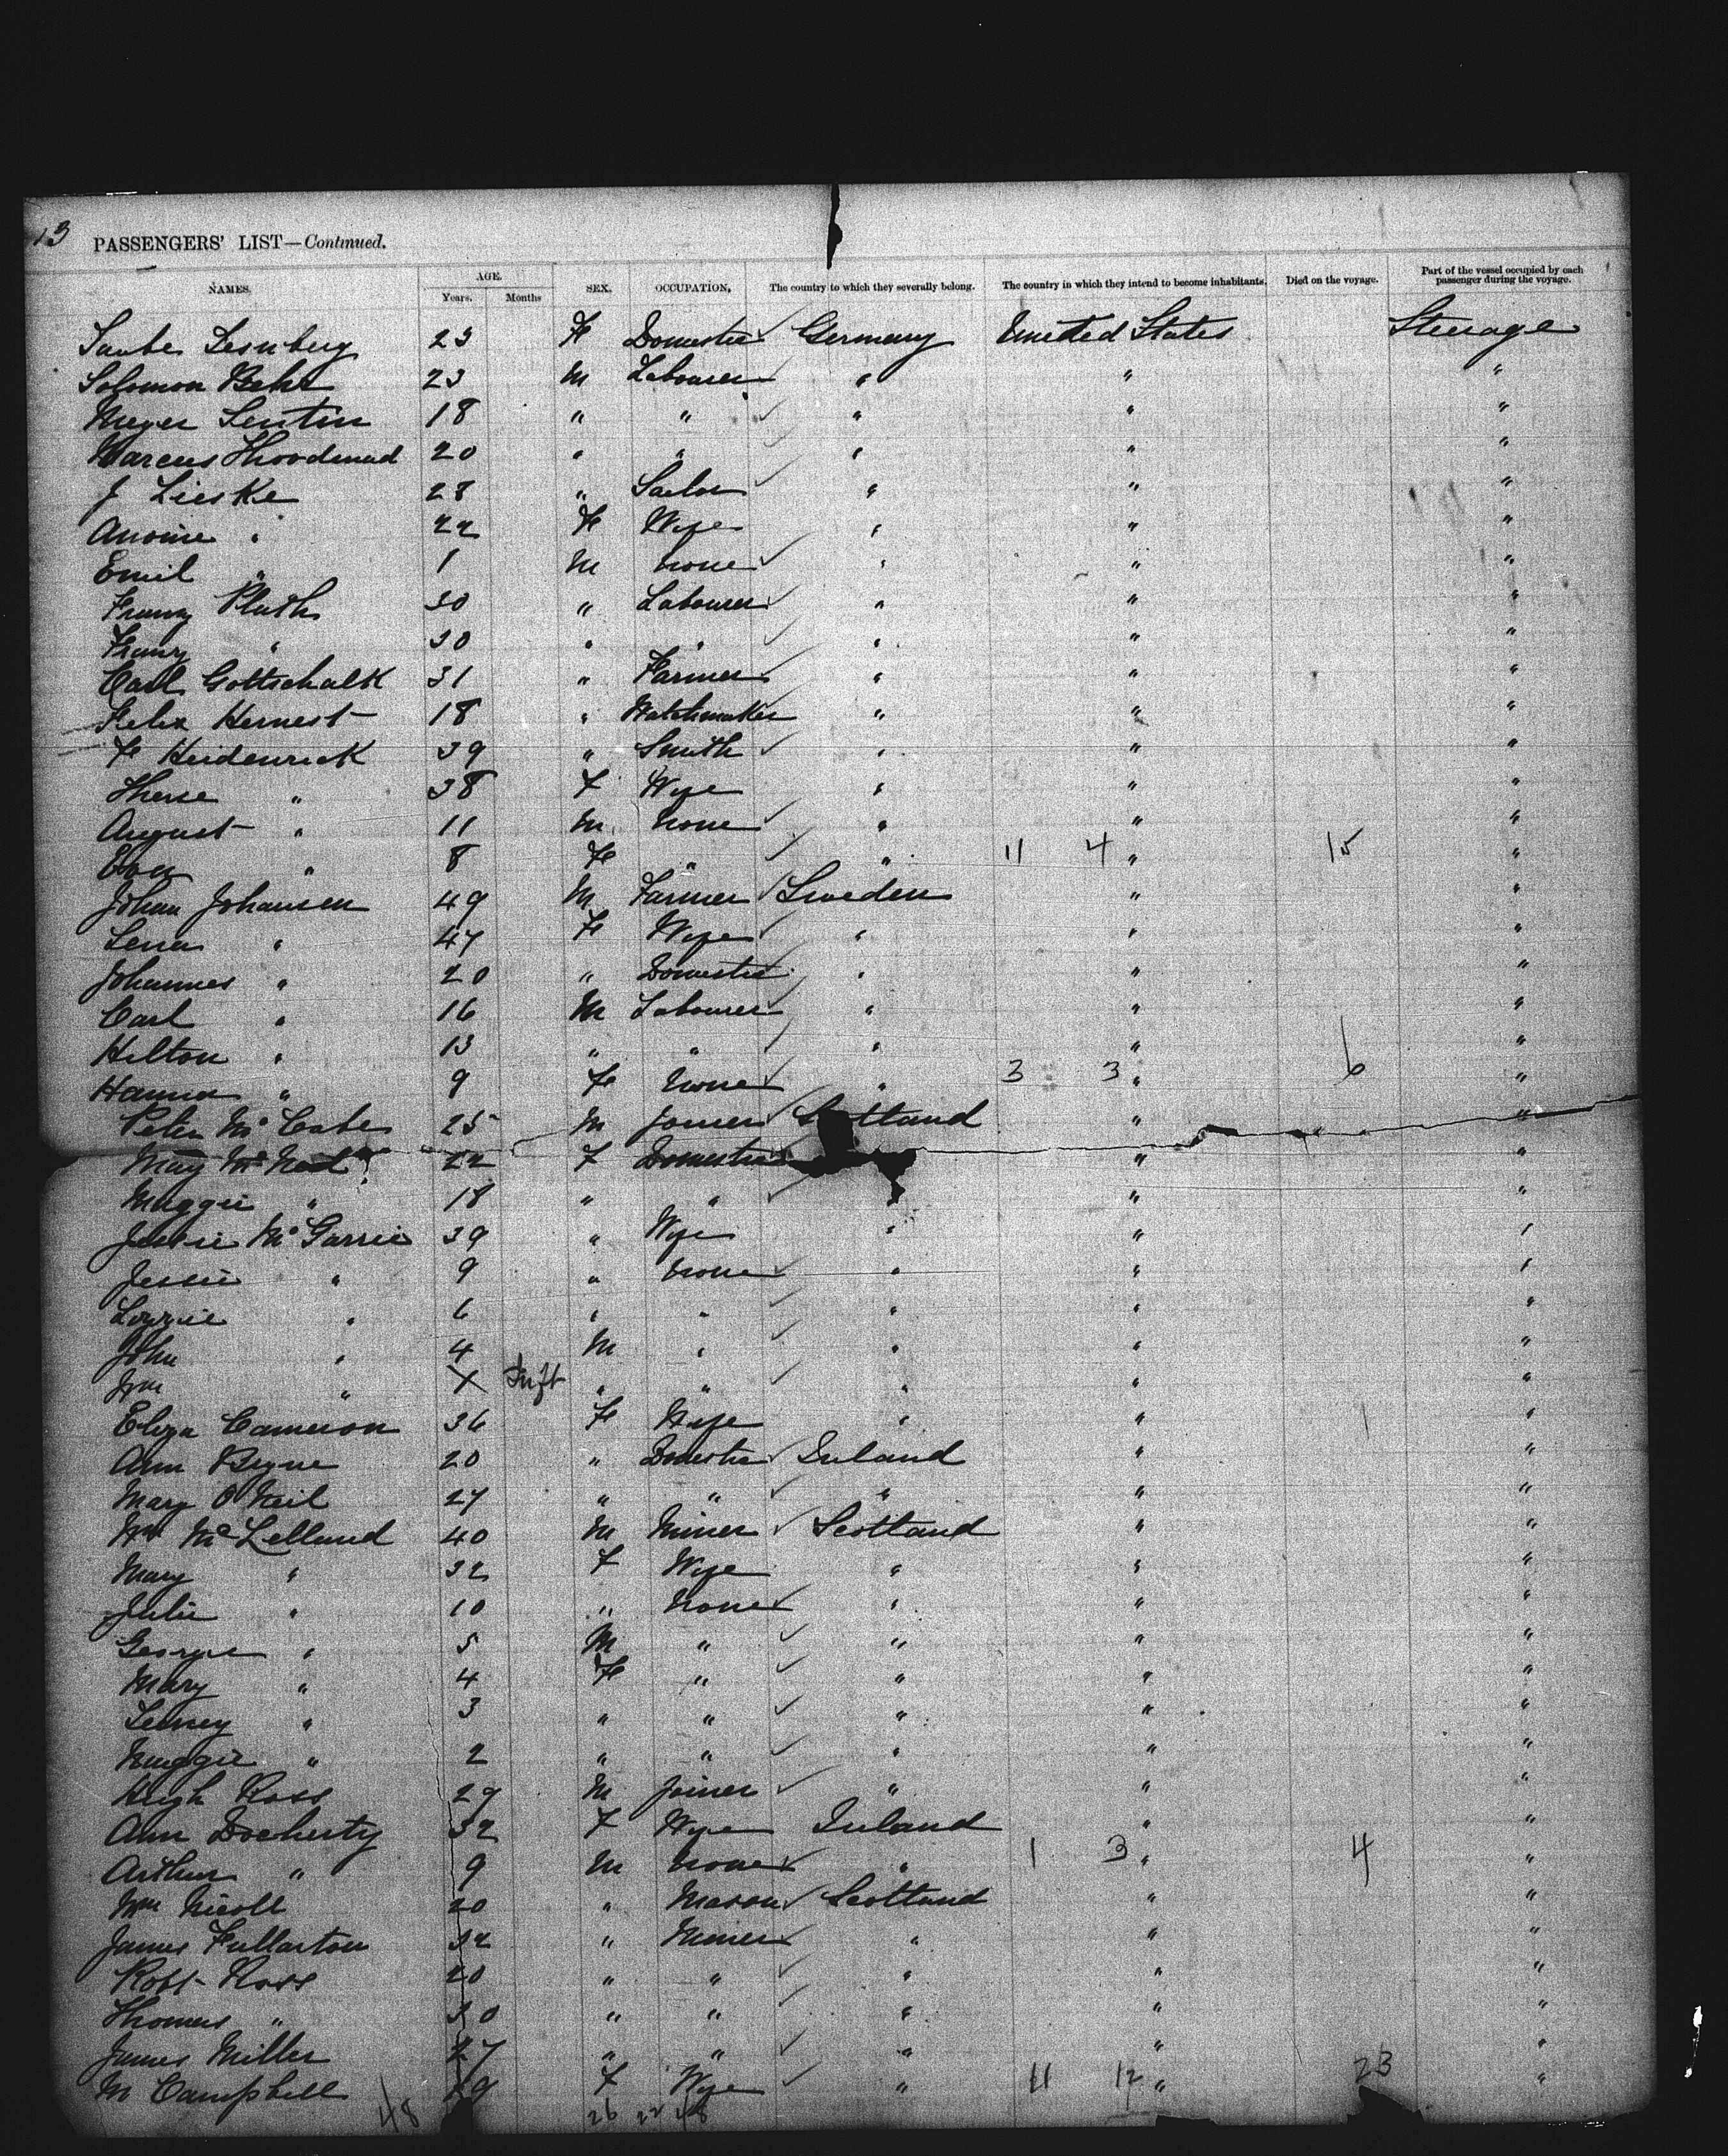 13
PASSENGERS' LIST—Continued.
NAMES. AGE. Years. Months SEX. OCCUPATION. The country to which they severally belong. The country in which they intend to become inhabitants. Died on the voyage. Part of the vessel occupied by each passenger during the voyage.
23 F Domestic Germany United States Steerage
Solomon Behr 23 M Labourer " " "
Meyer Lentin 18 " " " " "
Marcus 20 " " " " "
J Lieske 28 " Sailor " " "
" 22 F Wife " " "
Emil " 1 M none " " "
Franz Plath 30 " Labourer " " "
Franz " 30 " " " " "
Carl Gottschalk 31 " Farmer " " "
Felix Hernest 18 " Watchmaker " " "
F Heidenrick 39 " Smith " " "
Therse " 38 F Wife " " "
August " 11 M None " " "
" 8 F " " 11 4 " 15 "
Johan Johansen 49 M Farmer Sweden " "
Lena " 47 F Wife " " "
Johannes " 20 " Domestic " " "
Carl " 16 M Labourer " " "
Hilton " 13 " " " " "
Hanna " 9 F None " 3 3 " 6 "
Peter McCabe 25 M Joiner Scotland " "
May 22 F Domestic " "
Maggie " 18 " " " "
Jessie McGarrie 39 " Wife " " "
Jessie " 9 " none " " "
Lizzie " 6 " " " " "
John " 4 M " " " "
Wm " X Inft " " " " "
Eliza Cameron 36 F Wife " " "
Ann Beyne 20 " Domestic Ireland " "
Mary O'Neil 27 " " " " "
Wm McLelland 40 M Miner Scotland " "
Mary " 32 F Wife " " "
Julie " 10 " None " " "
George " 5 M " " " "
Mary " 4 F " " " "
" 3 " " " " "
Maggie " 2 " " " " "
Hugh Ross 29 M Joiner " " "
Ann Docherty 32 F Wife Ireland " "
Arthur " 9 M None " 1 3 " 4 "
Wm Nicoll 20 " Mason Scotland " "
James Fullarton 32 " Miner " " "
Robt Ross 20 " " " " "
Thomas " 30 " " " " "
James Miller 27 " " " " "
M Campbell 29 F Wife " 11 12 " 23 "
48 26 22 48